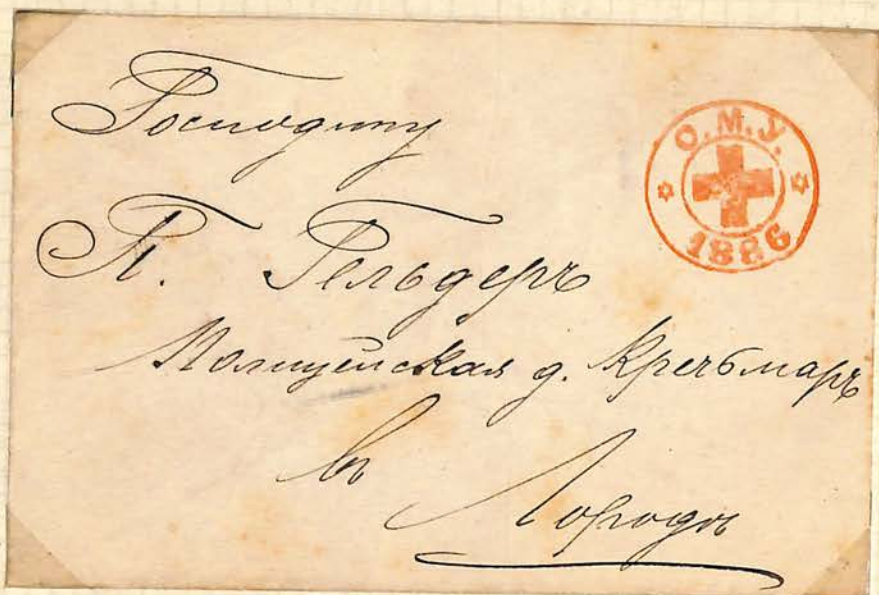 Господину
О.М.У.
1886
П. Гельдеръ
Полицейская д. Кречмаръ
въ
Городѣ